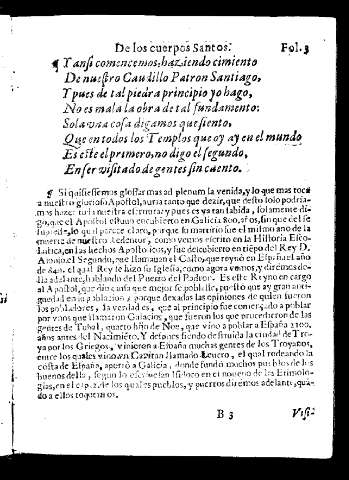 De los cuerpos Santos. Fol. 3
¶ Y ansi comencemos, haziendo cimiento
De nuestro Caudillo Patron Santiago,
Y pues de tal piedra principio yo hago,
No es mala la obra de tal fundamento:
Sola vna cosa digamos que siento,
Que en todos los Templos que oy ay en el mundo
Es este el primero, no digo el segundo,
En ser visitado de gentes sin cuento.
¶ Si quisiessemos glossar mas ad plenum la venida, y lo que mas toca
a nuestro glorioso Apostol, auria tanto que dezir, que desto solo podria-
mos hazer toda nuestra y pues es ya tan sabida, solamente di-
go, que el Apostol estuuo encubierto en Galicia 800. años, sin que del se
lo qual parece claro, porque lo martirio fue el mismo año de la
muerte de nuestro Redentor, como vemos escrito en la Historia Esco-
lastica, en los hechos Apostolicos, y fue descubierto en tiẽpo del Rey D.
Alonso el Segundo, que llamauan el Casto, que reynò en España el año
de el qual Rey le hizo su Iglesia, como agora vemos, y diremos de-
lla adelante, hablando del Puerto del Padron. Es este Reyno en cargo
al Apostol, que dio causa que mejor se poblasse, puesto que ay gran anti-
guedad en la poblacion, y porque dexadas las opiniones de quien fueron
los pobladores, la verdad es, que al principio fue començado a poblar
por vnos que llamaron Galacios, que fueron los que procedieron de las
gentes de Tubal, quarto hijo de Noe, que vino a poblar a España
años antes del Nacimiẽto. Y despues siendo destruida la ciudad de Tro-
ya por los Griegos, vinieron a España muchas gentes de los Troyanos,
entre los quales vino vn Capitan llamado Teucro, el qual rodeando la
costa de España, aportò a Galicia, donde fundò muchos pueblos de los
buenos della, segun lo escriue san Isidoro en el noueno de las Etimolo-
gias, en el cap. de los quales pueblos, y puertos diremos adelante, quã-
do a ellos toquemos.
B 3 Visi-